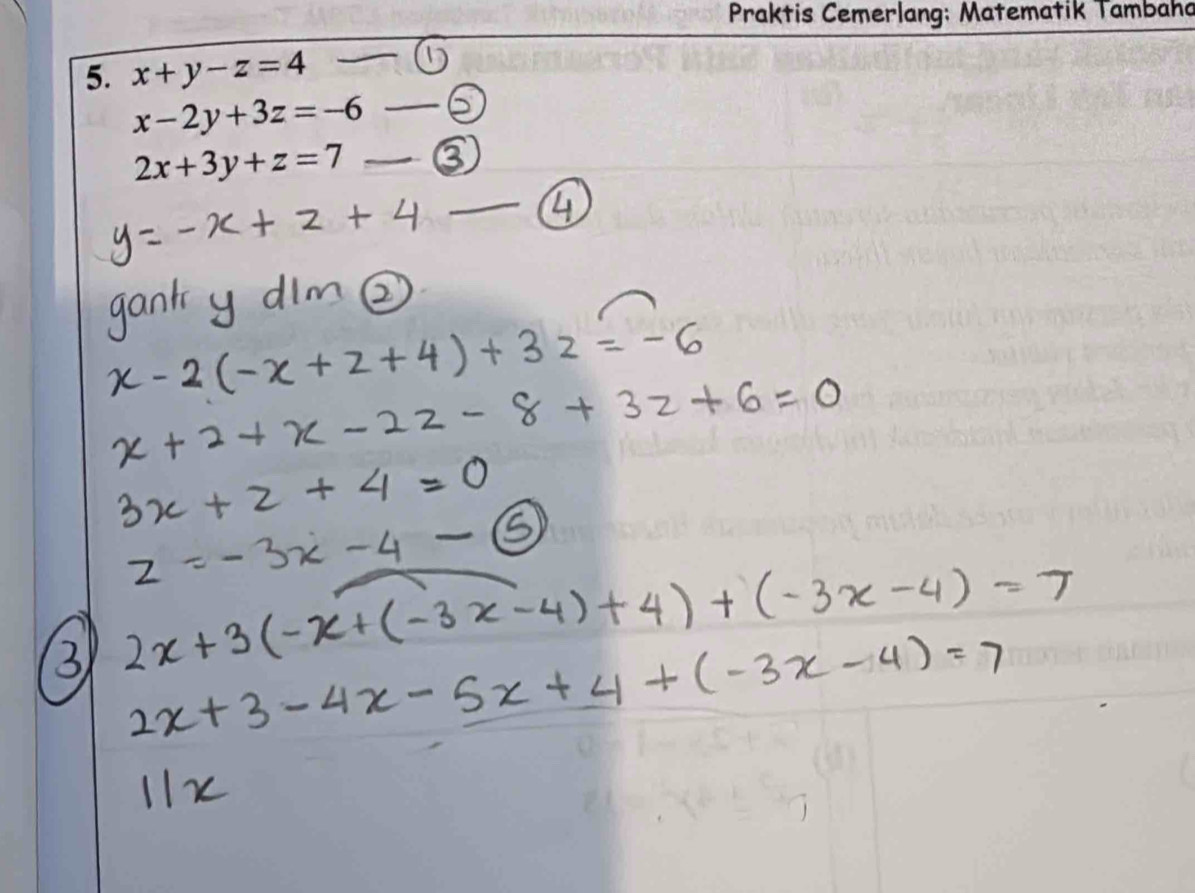 Praktis Cemerlang: Matematik Tambaha
5. x+y−z=4 — ①
x−2y+3z=−6 — ②
2x+3y+z=7 — ③
y=-x+z+4 — ④
ganti y dlm ②
x-2(-x+z+4)+3z=-6
x+2+x-2z-8+3z+6=0
3x+z+4=0
z=-3x-4 — ⑤
③ 2x+3(-x+(-3x-4)+4)+(-3x-4)=7
2x+3-4x-5x+4+(-3x-4)=7
11x